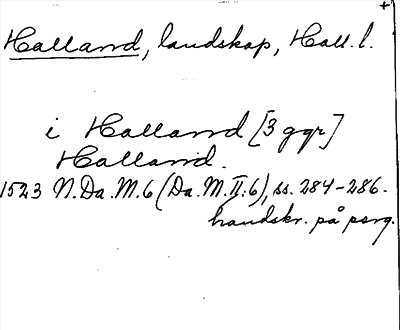 +
Halland, landskap, Hall. l.
i Halland [3 ggr]
Halland.
1523 N.Da.M.6 (Da.M.II:6), ss. 284-286.
handskr. på perg.